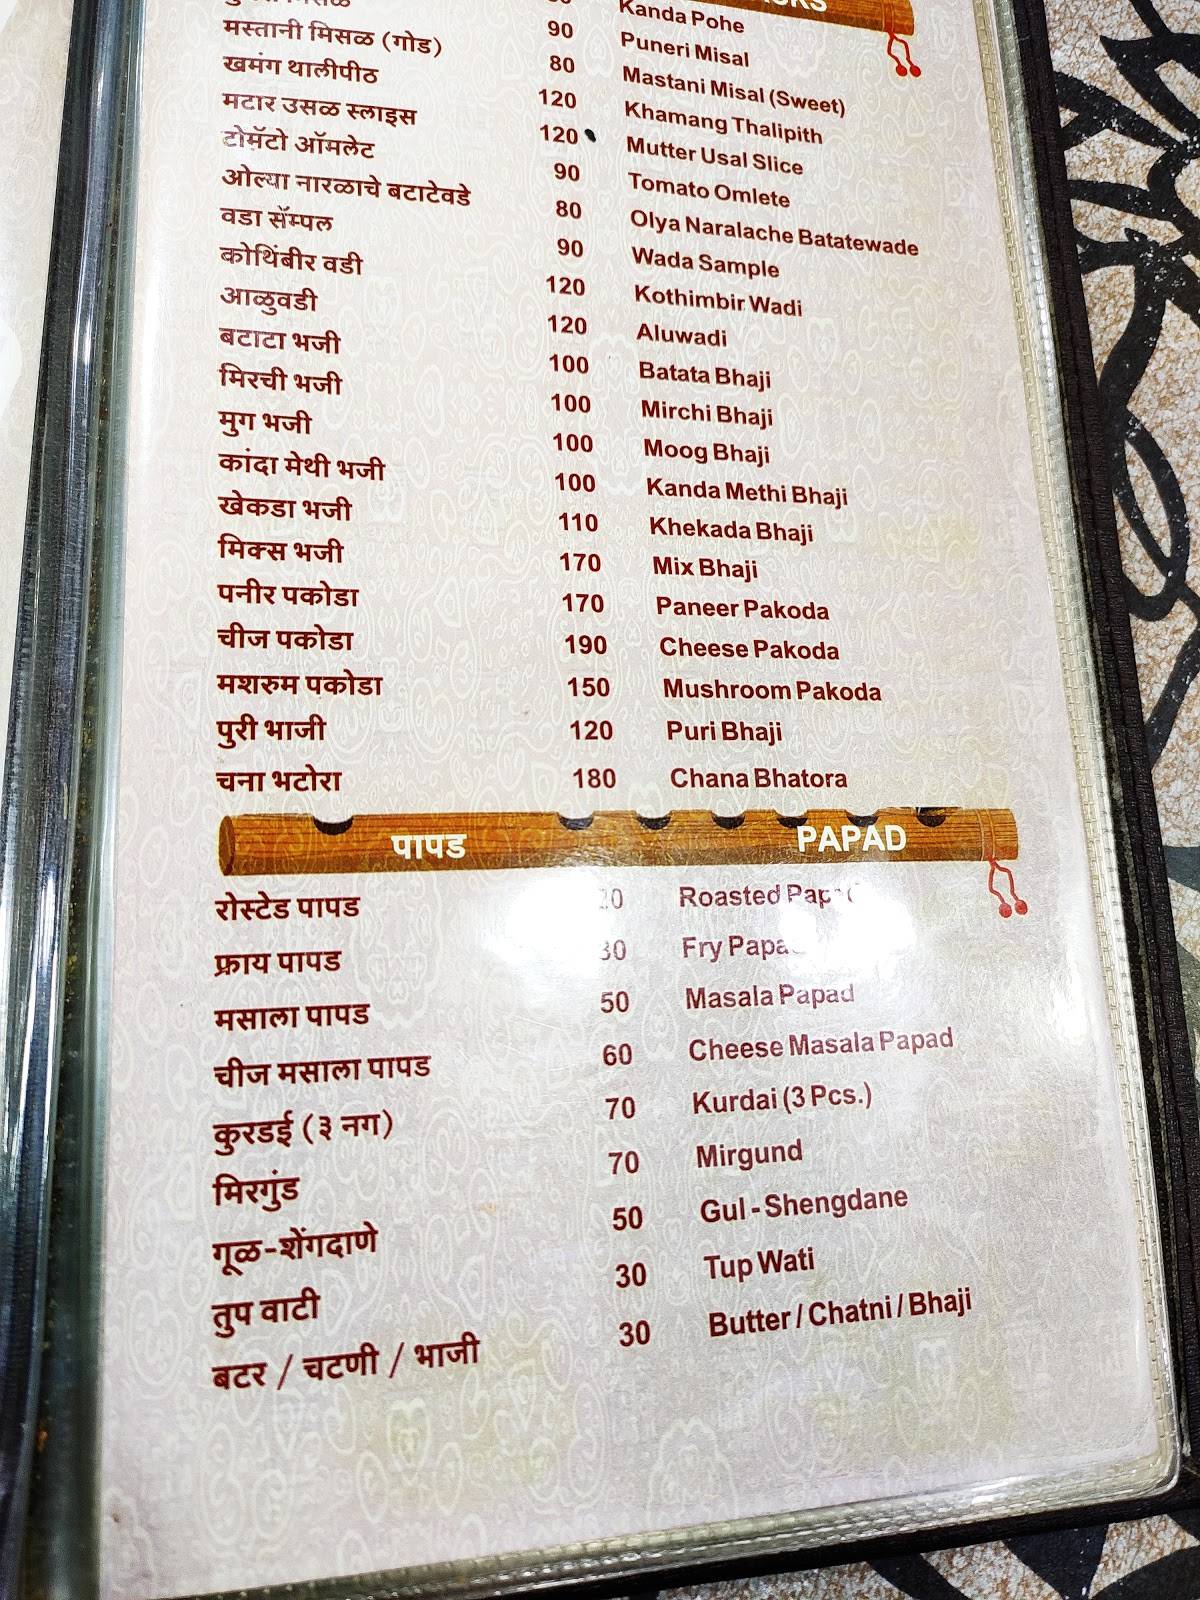 Kanda Pohe
मिसळ 90 Puneri Misal
मस्तानी मिसळ (गोड) 80 Mastani Misal (Sweet)
खमंग थालीपीठ 120 Khamang Thalipith
मटार उसळ स्लाइस 120 Mutter Usal Slice
टोमॅटो ऑमलेट 90 Tomato Omlete
ओल्या नारळाचे बटाटेवडे 80 Olya Naralache Batatewade
वडा सॅम्पल 90 Wada Sample
कोथिंबीर वडी 120 Kothimbir Wadi
आळुवडी 120 Aluwadi
बटाटा भजी 100 Batata Bhaji
मिरची भजी 100 Mirchi Bhaji
मुग भजी 100 Moog Bhaji
कांदा मेथी भजी 100 Kanda Methi Bhaji
खेकडा भजी 110 Khekada Bhaji
मिक्स भजी 170 Mix Bhaji
पनीर पकोडा 170 Paneer Pakoda
चीज पकोडा 190 Cheese Pakoda
मशरुम पकोडा 150 Mushroom Pakoda
पुरी भाजी 120 Puri Bhaji
चना भटोरा 180 Chana Bhatora
पापड PAPAD
रोस्टेड पापड 20 Roasted Papad
फ्राय पापड 30 Fry Papad
मसाला पापड 50 Masala Papad
चीज मसाला पापड 60 Cheese Masala Papad
कुरडई (३ नग) 70 Kurdai (3 Pcs.)
मिरगुंड 70 Mirgund
गूळ-शेंगदाणे 50 Gul - Shengdane
तुप वाटी 30 Tup Wati
बटर / चटणी / भाजी 30 Butter / Chatni / Bhaji